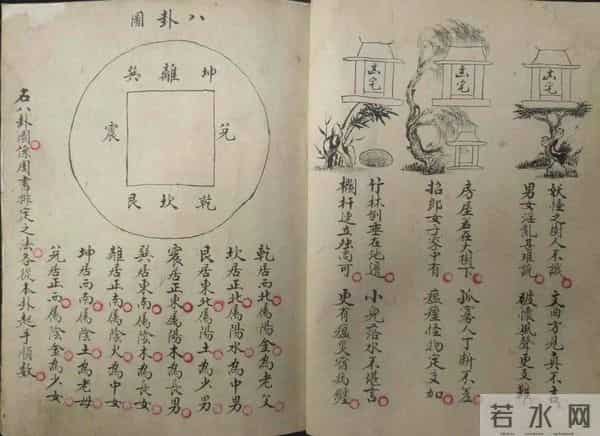 宅
宅
宅
妖怪之樹人不識 文曲方見真不吉
男女淫亂甚堪 破懷風聲更難
房屋若在大樹下 孤寡人丁斷不差
招郎女子家中有 瘟怪物定交加
竹林倒垂在地邊 小兒落水不堪言
欄杆建立猶尚可 更有瘟災
八卦圖
坤 離 巽
兌 震
乾 坎 艮
乾居西北屬陽金為老父
坎居正北屬陽水為中男
艮居東北屬陽土為少男
震居正東屬陽木為長男
巽居東南屬陰木為長女
離居正南屬陰火為中女
坤居西南屬陰土為老母
兌居正西屬陰金為少女
右八卦圖係周書排定之法各從本卦起手順數
若水网